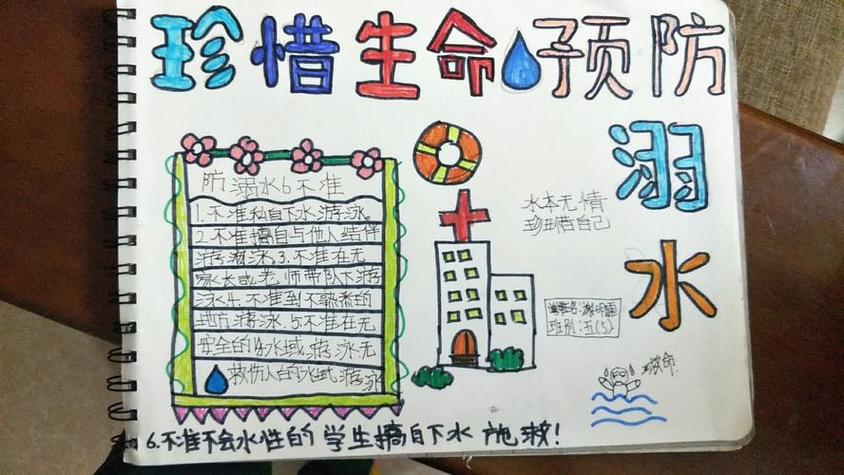 珍惜生命预防
溺
水
防溺水6不准
1.不准私自下水游泳。
2.不准擅自与他人结伴
游泳.3.不准在无
家长或老师带队下游
泳4.不准到不熟悉的
地方游泳.5.不准在无
安全的水域.游泳无
救伤人台的水域.游泳
6.不准不会水性的学生擅自下水施救!
水本无情
珍惜自己
班别:五(5)
救命